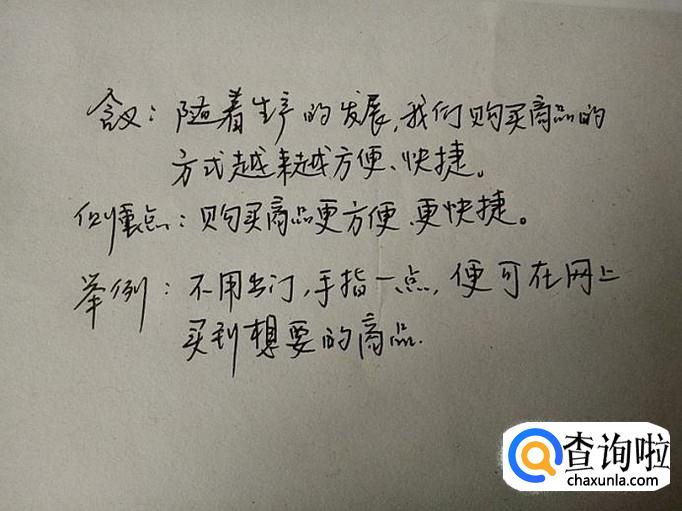 含义：随着生产的发展，我们购买商品的
方式越来越方便、快捷。
侧重点：购买商品更方便、更快捷。
举例：不用出门，手指一点，便可在网上
买到想要的商品.
查询啦
chaxunla.com